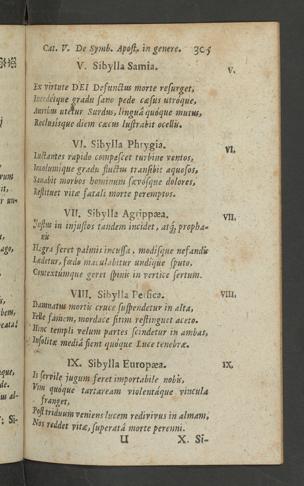 Cat. V. De Symb. Apost. in genere. 305
V. Sibylla Samia. V.
Ex virtute DEI Defunctus morte resurget,
Incedetque gradu sano pede cæsus utroque,
Auribus utetur Surdus, linguâ quóque mutus,
Reclusisque diem cæcus lustrabit ocellis.
VI. Sibylla Phrygia. VI.
Luctantes rapido compescet turbine ventos,
Incolumique gradu fluctus transibit aquosos,
Sanabit morbos hominum sævosque dolores,
Restituet vitæ fatali morte peremptos.
VII. Sibylla Agrippæa. VII.
in injustos tandem incidet, atq; propha-
nis
Flagra feret palmis incussa, modisque nefandis
Lædetur, fœdo maculabitur undique sputo.
Contextumque geret spinis in vertice sertum.
VIII. Sibylla Persica. VIII.
Damnatus mortis cruce suspendetur in alta,
Felle famem, mordace sitim restinguet aceto.
Hinc templi velum partes scindetur in ambas,
Insolitæ mediâ fient quóque Luce tenebræ.
IX. Sibylla Europæa. IX.
Is servile jugum feret importabile nobis,
Vim quóque tartaream violentáque vincula
franget,
Post triduum veniens lucem redivivus in almam,
Nos reddet vitæ, superatâ morte perenni.
U X. Si-